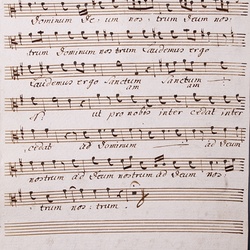 Dominum De: um nos: trum Deum nos:
trum Dominum nos trum Laudemus ergo
Laudemus ergo Sanctum Sanctum
am am
ut pro nobis inter cedat inter
cedat ad Dominum ad Deum
nostrum ad Deum nostrum ad Deum nos:
trum nos: trum.